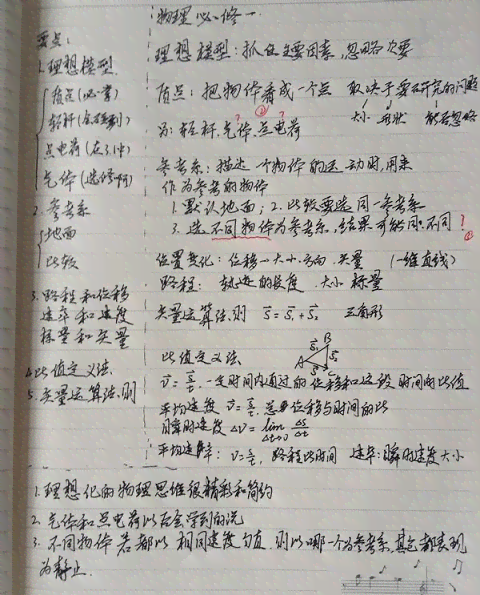 物理必修一
要点:
1.理想模型
质点(必一掌)
轻杆(会碰到)
点电荷(在3.1中)
气体(选修啊)
2.参考系
地面
比较
3.路程和位移
速率和速度
标量和矢量
4.比值定义法
5.矢量运算法则
理想模型:抓住主要因素,忽略次要
质点:把物体看成一个点 取决于要研究的问题
大小 形状 能否忽略
②
为:轻杆,气体,点电荷
? ? ?
参考系:描述一个物体的运动时,用来
作为参考的物体
1.默认地面;2.比较要选同一参考系
3.选不同物体为参考系,结果可能同,不同?
位置变化:位移—大小,方向,矢量 (一维直线)
路程:轨迹的长度,大小 标量
矢量运算法则 S=S₁+S₂ 三角形
A B C
比值定义法
V=S/t,一定时间内通过的位移和这段时间的比值
平均速度 V=S/t,总位移与时间的比
瞬时速度 ΔV=lim Δt→0 ΔS/Δt
平均速率:V=S/t,路程比时间 速率:瞬时速度大小
1.理想化的物理思维很精彩和简约
2.气体和点电荷以后会学到的洗
3.不同物体若都以相同速度匀直,则以哪一个为参考系,其它都表现
为静止.